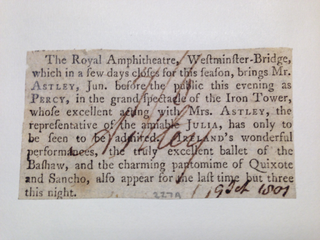 The Royal Amphitheatre, Westminster-Bridge,
which in a few days closes for this season, brings Mr.
ASTLEY, Jun. before the public this evening as
PERCY, in the grand spectacle of the Iron Tower,
whose excellent acting with Mrs. ASTLEY, the
representative of the amiable JULIA, has only to
be seen to be admired. 's wonderful
performances, the truly excellent ballet of the
Bashaw, and the charming pantomime of Quixote
and Sancho, also appear for the last time but three
this night.
1801